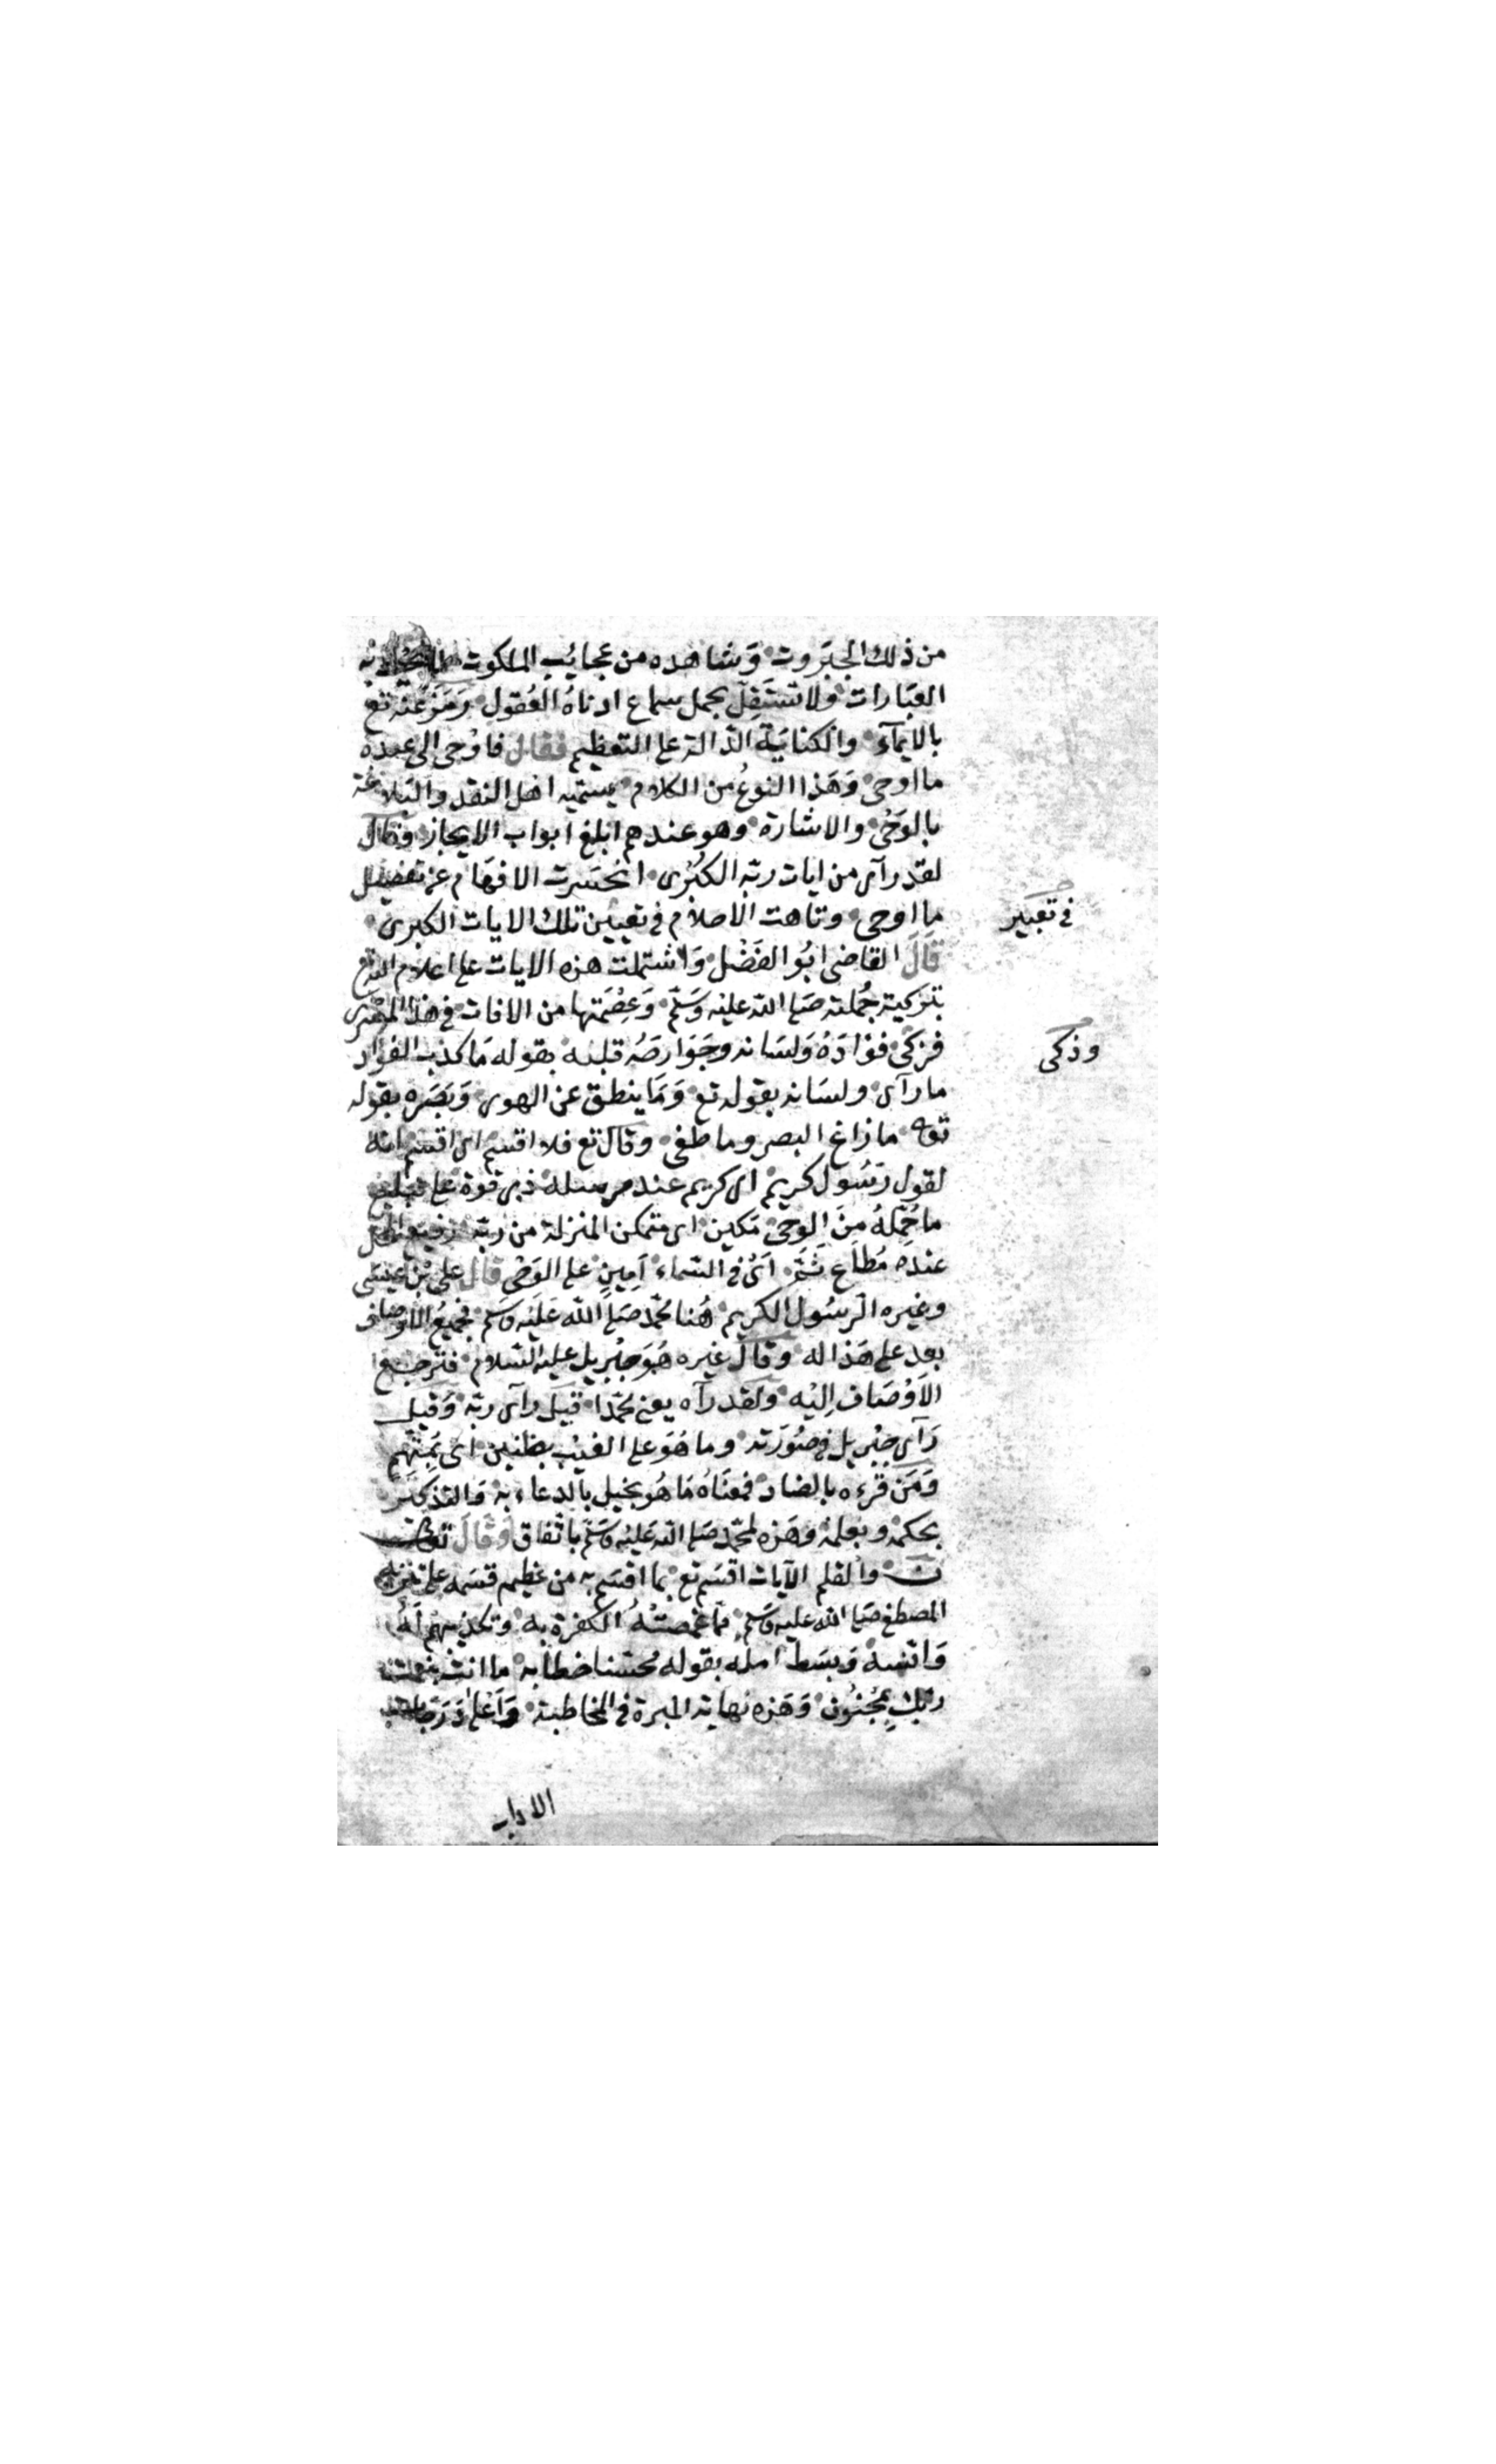 من ذلك الجبروت وشاهده من عجايب الملكوت
العبارات ولا تستقل بحمل سماع ادناه العقول رمز عنه تع
بالايمآء والكناية الدالة على التعظيم فقال فاوحى الى عبده
ما اوحى وهذا النوع من الكلام يسميه اهل النقد والبلاغة
بالوحى والاشارة وهو عندهم ابلغ ابواب الايجاز وقال
لقد رآى من ايات ربه الكبرى انحسرت الافهام عن تفصيل
ما اوحى وتاهت الاحلام فى تعيين تلك الايات الكبرى
فى تعبير
قال القاضى ابو الفضل واشتملت هذه الايات على اعلام الله تع
بتزكية جملته صلى الله عليه وسلم وعصمتها من الافات فى هذا المسرى
فزكى فؤاده ولسانه وجوارحه قلبه بقوله ما كذب الفؤاد
وذكى
ما رآى ولسانه بقوله تع وما ينطق عن الهوى وبصره بقوله
تعه ما زاغ البصر وما طغى وقال تع فلا اقسم اى اقسم انه
لقول رسول كريم اى كريم عند مرسله ذى قوة على تبليغ
ما حمله من الوحى مكين اى متمكن المنزلة من ربه رفيع المحل
عنده مطاع ثم اى فى السماء امين على الوحى قال على بن عيسى
وغيره الرسول الكريم هنا محمد صلى الله عليه وسلم فجميع الاوصاف
بعد على هذا له وقال غيره هو جبريل عليه السلام فترجع
الاوصاف اليه ولقد رآه يعنى محمدا قيل رآى ربه وقيل
رآى جبريل فى صورته وما هو على الغيب بظنين اى بمتهم
ومن قرءه بالضاد فمعناه ما هو بخيل بالدعاء به والتذكير
بحكمه وبعلمه وهذه لمحمد صلى الله عليه وسلم باتفاق وقال تعه
ن والقلم الآيات اقسم تع بما اقسم به من عظيم قسمه على تنزيه
المصطفى صلى الله عليه وسلم مما غمصته الكفرة به وتكذيبهم له
وانسه وبسط امله بقوله محسنا خطابه ما انت بنعمة
ربك بمجنون وهذه نهاية المبرة فى المخاطبة واعلى درجات
الاداب